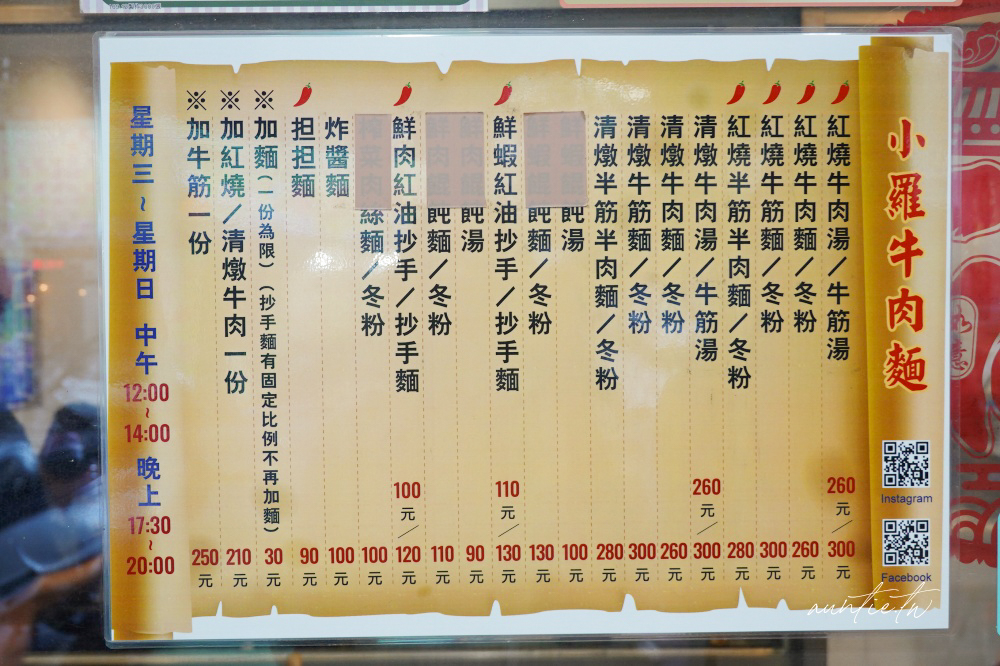 小羅牛肉麵
Instagram
Facebook
紅燒牛肉湯/牛筋湯 260元/300元
紅燒牛肉麵/冬粉 260元
紅燒牛筋麵/冬粉 300元
紅燒半筋半肉麵/冬粉 280元
清燉牛肉湯/牛筋湯 260元/300元
清燉牛肉麵/冬粉 260元
清燉牛筋麵/冬粉 300元
清燉半筋半肉麵/冬粉 280元
飩湯 100元
飩麵/冬粉 130元
鮮蝦紅油抄手/抄手麵 110元/130元
飩湯 90元
飩麵/冬粉 110元
鮮肉紅油抄手/抄手麵 100元/120元
絲麵/冬粉 100元
炸醬麵 100元
担担麵 90元
※加麵(一份為限)(抄手麵有固定比例不再加麵) 30元
※加紅燒/清燉牛肉一份 210元
※加牛筋一份 250元
星期三~星期日 中午 12:00~14:00 晚上 17:30~20:00
auntie.tw